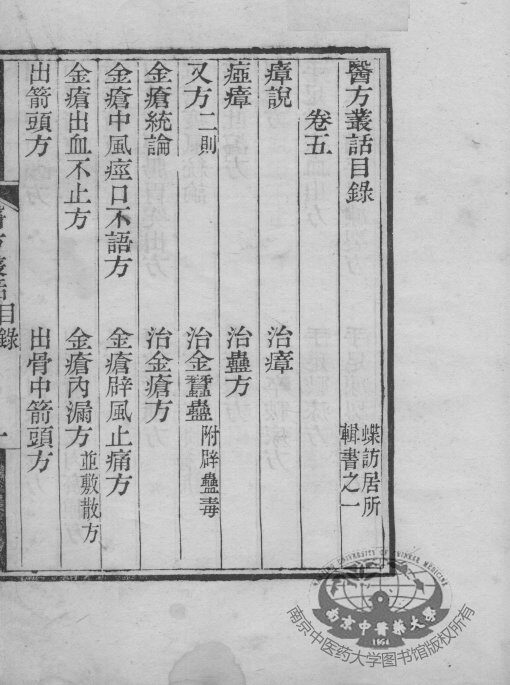 醫方叢話目錄
蝶訪居所
輯書之一
卷五
瘴說 治瘴
瘂瘴 治蠱方
又方二則 治金蠶蠱附辟蠱毒
金瘡統論 治金瘡方
金瘡中風痙口不語方 金瘡辟風止痛方
金瘡出血不止方 金瘡內漏方並敷散方
出箭頭方 出骨中箭頭方
醫方叢話目錄
一
UNIVERSITY OF CHINESE MEDICINE
南京中醫藥大學
南京中医药大学图书馆版权所有